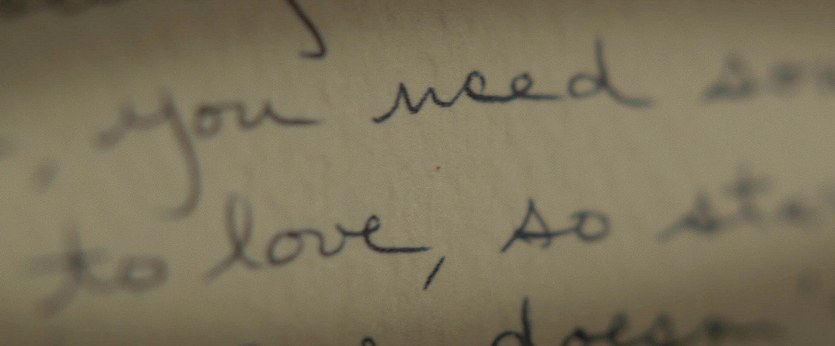 , you need so
to love, so sta
doesn'